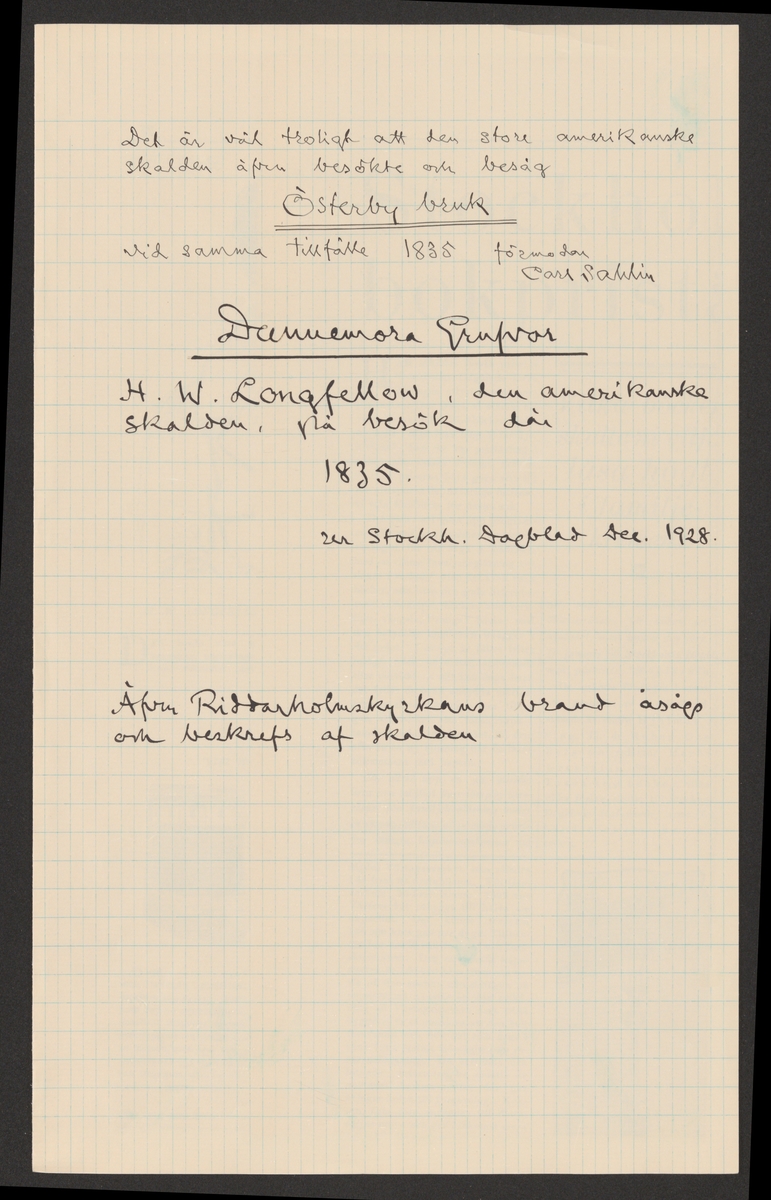 Det är väl troligt att den store amerikanske
skalden äfven besökte och besåg
Österby bruk
vid samma tillfälle 1835 förmodar
Carl Sahlin
Dannemora Grufvor
H. W. Longfellow, den amerikanske
skalden, på besök där
1835.
ur Stockh. Dagblad Dec. 1928.
Äfven Riddarholmskyrkans brand åsågs
och beskrefs af skalden